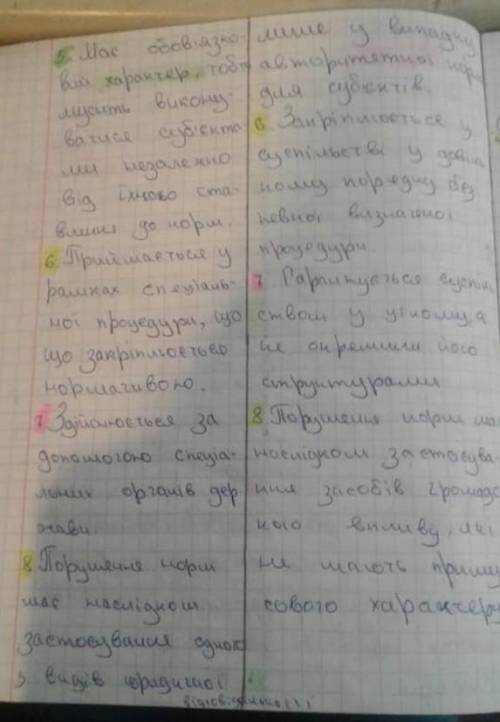 5. Має обов'язко-
вий характер, тобто
мусить викону-
ватися суб'єкта
ми незалежно
від їхнього ста-
влення до норм.
6. Приймається у
рамках спеціаль-
ної процедури, що
що закріплюється
нормативою.
7. Здійснюється за
допомогою спеціа-
льних органів дер
жави.
8. Порушення норм
має наслідком
застосування одного
з видів юридичної
відповідальності
лише у випадку
авторитетної норм
для суб'єктів.
6. Закріплюється у
суспільстві у довіль
ному порядку без
певної визначеної
процедури.
7. Гарантується суспіль
ством у цілому, а
не окремими його
структурами
8. Порушення норм ма
наслідком застосува-
ння засобів громадс
кого впливу, які
не мають приму
сового характеру